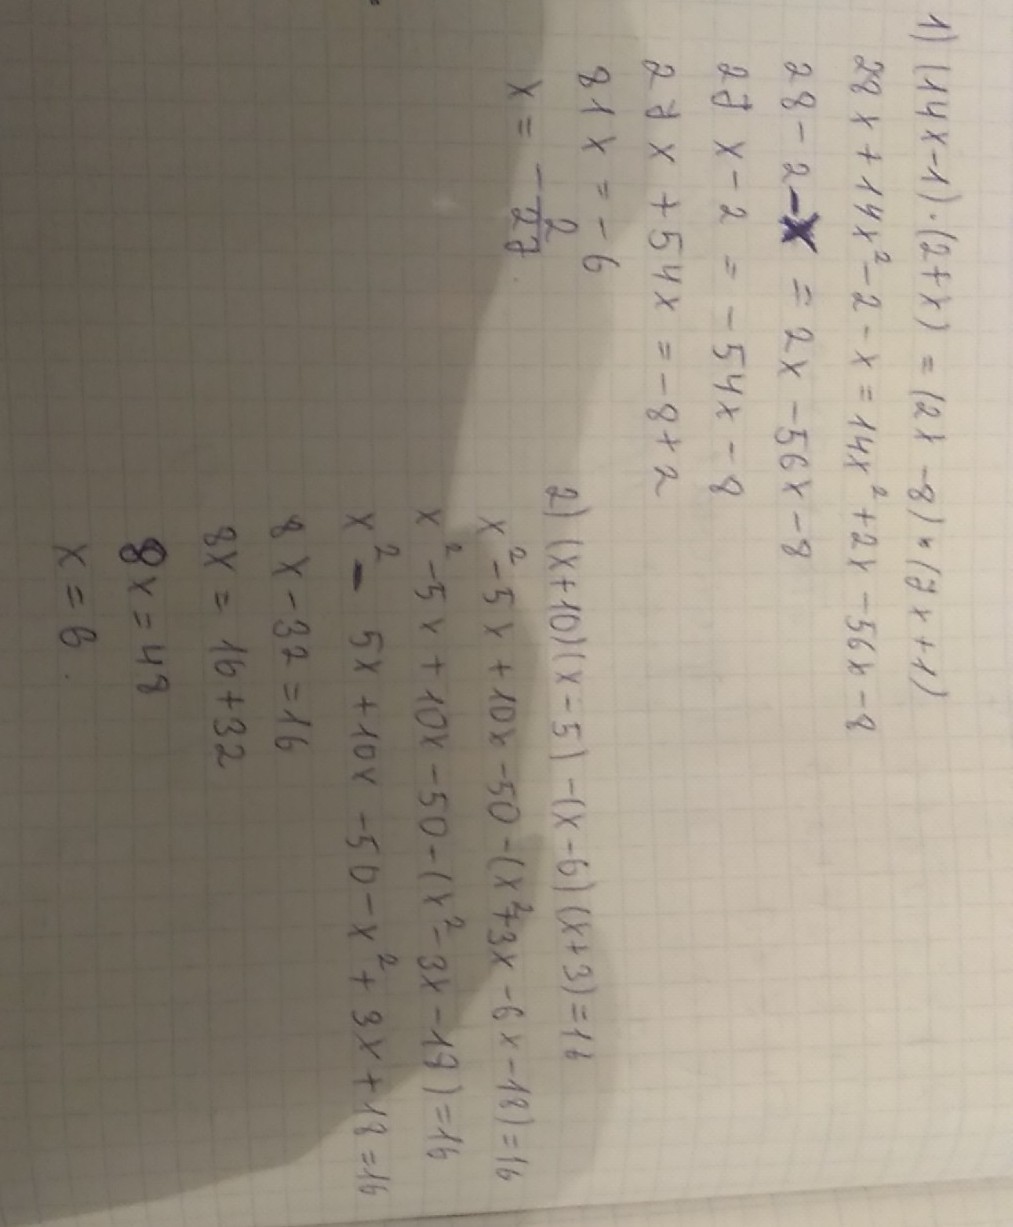 1) (14x-1)·(2+x) = (2x-8)·(7x+1)
28x+14x²-2-x=14x²+2x-56x-8
28-2-x = 2x-56x-8
27x-2 = -54x-8
27x+54x = -8+2
81x = -6
x = -2/27.
2) (x+10)(x-5)-(x-6)(x+3)=16
x²-5x+10x-50-(x²+3x-6x-18)=16
x²-5x+10x-50-(x²-3x-18)=16
x²-5x+10x-50-x²+3x+18=16
8x-32=16
8x=16+32
8x=48
x=6.